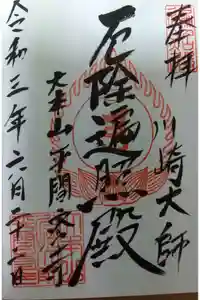 奉拝
川崎大師
厄除遍照殿
大本山平間寺
令和三年六月二十二日